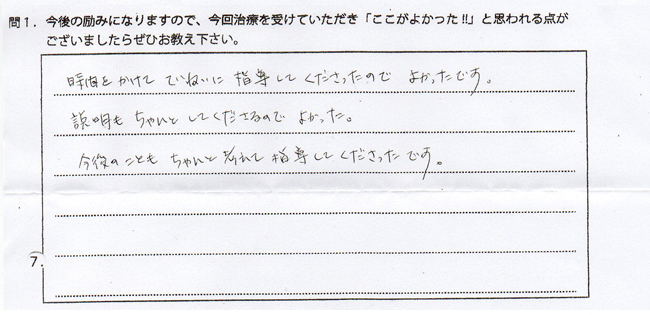 問1. 今後の励みになりますので、今回治療を受けていただき「ここがよかった!!」と思われる点が
ございましたらぜひお教え下さい。
時間をかけて ていねいに 指導してくださったので よかったです。
説明も ちゃんと してくださるので よかった。
今後のことも ちゃんと 考えて 指導してくださったです。
7.